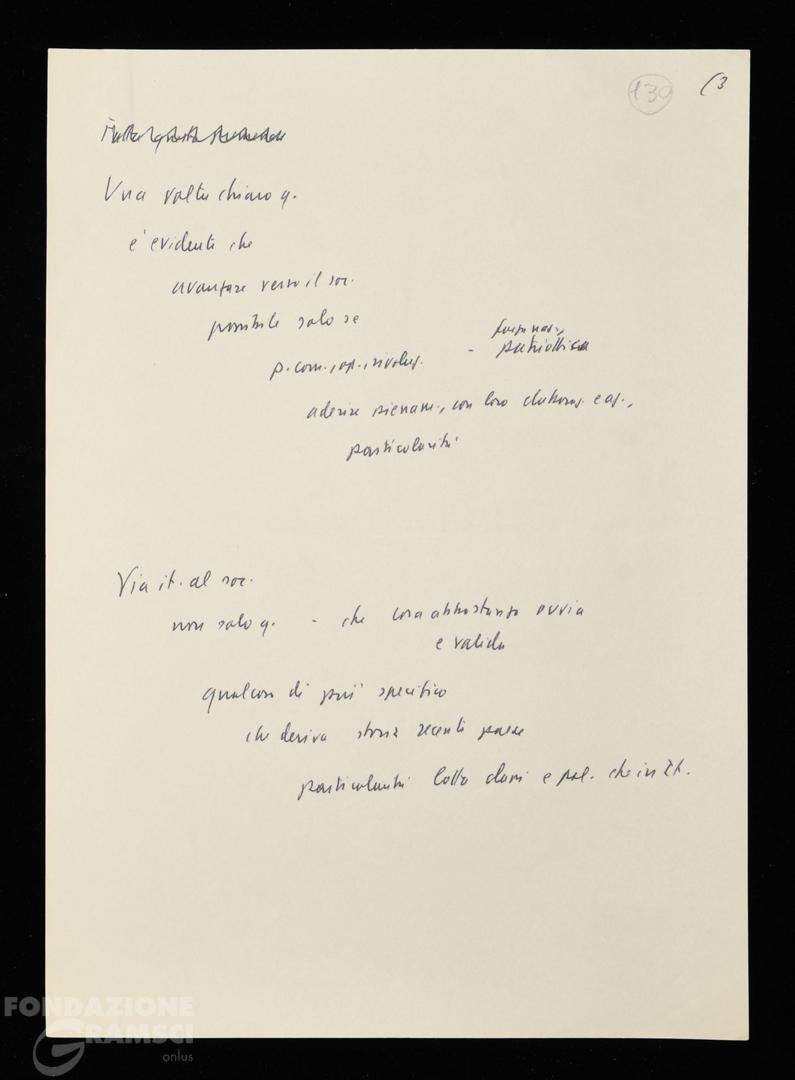 130
(3
Una volta chiaro q.
e' evidente che
avanzare verso il soc.
possibile solo se
p. com., op., rivoluz. - patriottica
aderire pienam., con loro elaboraz. e az.,
particolarità
Via it. al soc.
non solo q. - che cosa abbastanza ovvia
e valida
qualcosa di più specifico
che deriva storia recente paese
particolarità lotta classi e pol. che in It.
FONDAZIONE
GRAMSCI
onlus